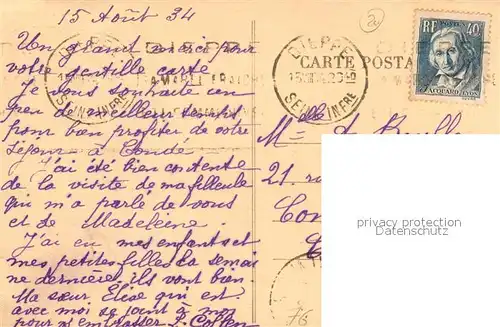 15 Août 34
Un grand merci pour
votre gentille carte
Je vous souhaite un
peu de meilleur temps
pour bien profiter de votre
séjour à
J'ai été bien contente
de la visite de ma filleule
qui m'a parlé de vous
et de Madeleine.
J'ai eu mes enfants et
mes petites filles la semaine
dernière, ils vont bien.
Ma sœur, Elise qui est
avec moi se joint à moi
pour m'embrasser
CARTE POSTA
DIEPPE
SEINE INFRE
RF POSTES 40c
JACQUARD LYON
M
21. rue
privacy protection
Datenschutz
76